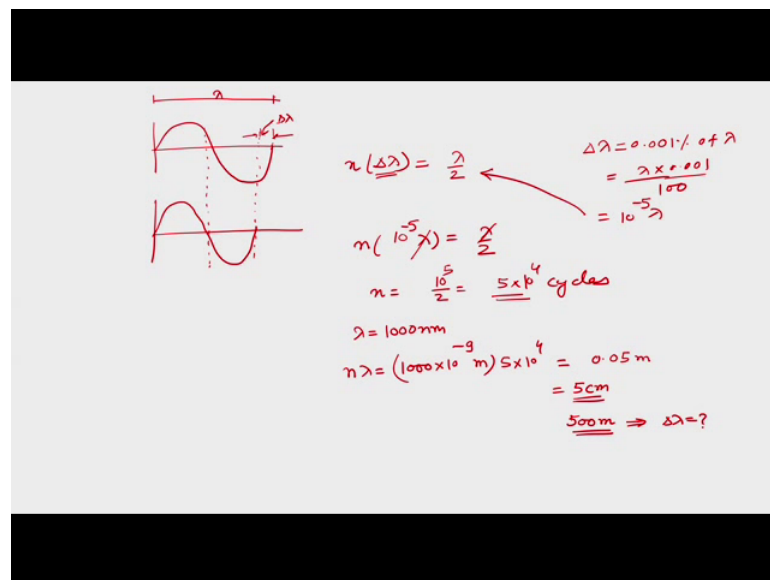 λ
Δλ
n(Δλ) = λ/2
Δλ = 0.001% of λ
= λ × 0.001 / 100
= 10⁻⁵ λ
n(10⁻⁵ λ) = λ/2
n = 10⁵/2 = 5×10⁴ cycles
λ = 1000nm
nλ = (1000×10⁻⁹ m) 5×10⁴ = 0.05 m
= 5cm
500m ⇒ Δλ=?